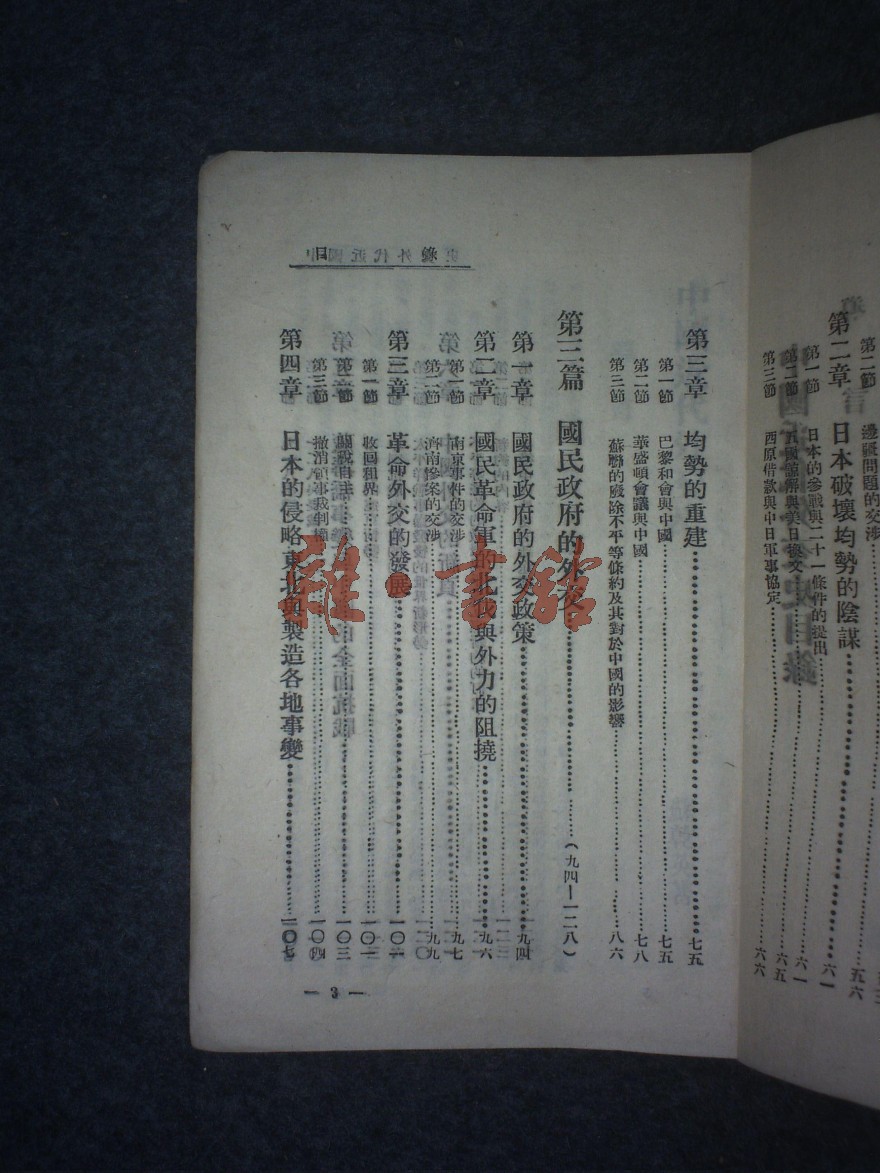 第二節 邊疆問題的交涉 五六
第二章 日本破壞均勢的陰謀 六一
第一節 日本的參戰與二十一條件的提出 六一
第二節 國諒解與美日換文 六五
第三節 西原借款與中日軍事協定 六六
目錄
第三章 均勢的重建 七五
第一節 巴黎和會與中國 七五
第二節 華盛頓會議與中國 七八
第三節 蘇聯的廢除不平等條約及其對於中國的影響 八六
第三篇 國民政府的外交 (九四—一二八)
第一章 國民政府的外交政策 九四
第二章 國民革命軍的北伐與外力的阻撓 九六
第一節 南京事件的交涉 九七
第二節 濟南慘案的交涉 九九
第三章 革命外交的發展 一〇一
第一節 收回租界 一〇一
第二節 關稅自主 一〇三
第三節 撤消領事裁判權 一〇四
第四章 日本的侵略東北與製造各地事變 一〇七
— 3 —
雅·書館